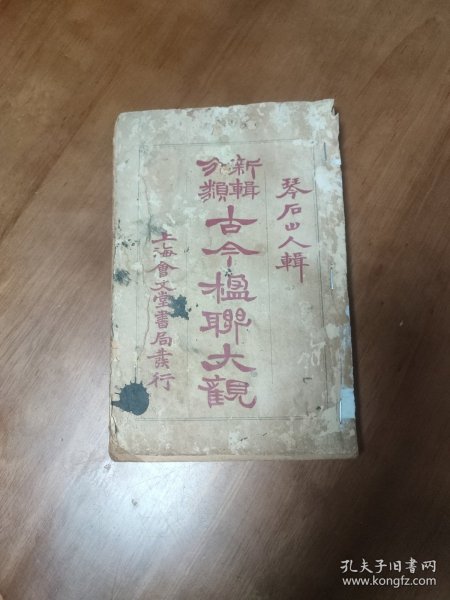 琴石山人輯
新輯
分類
古今楹聯大觀
上海會文堂書局發行
孔夫子旧书网
www.kongfz.com